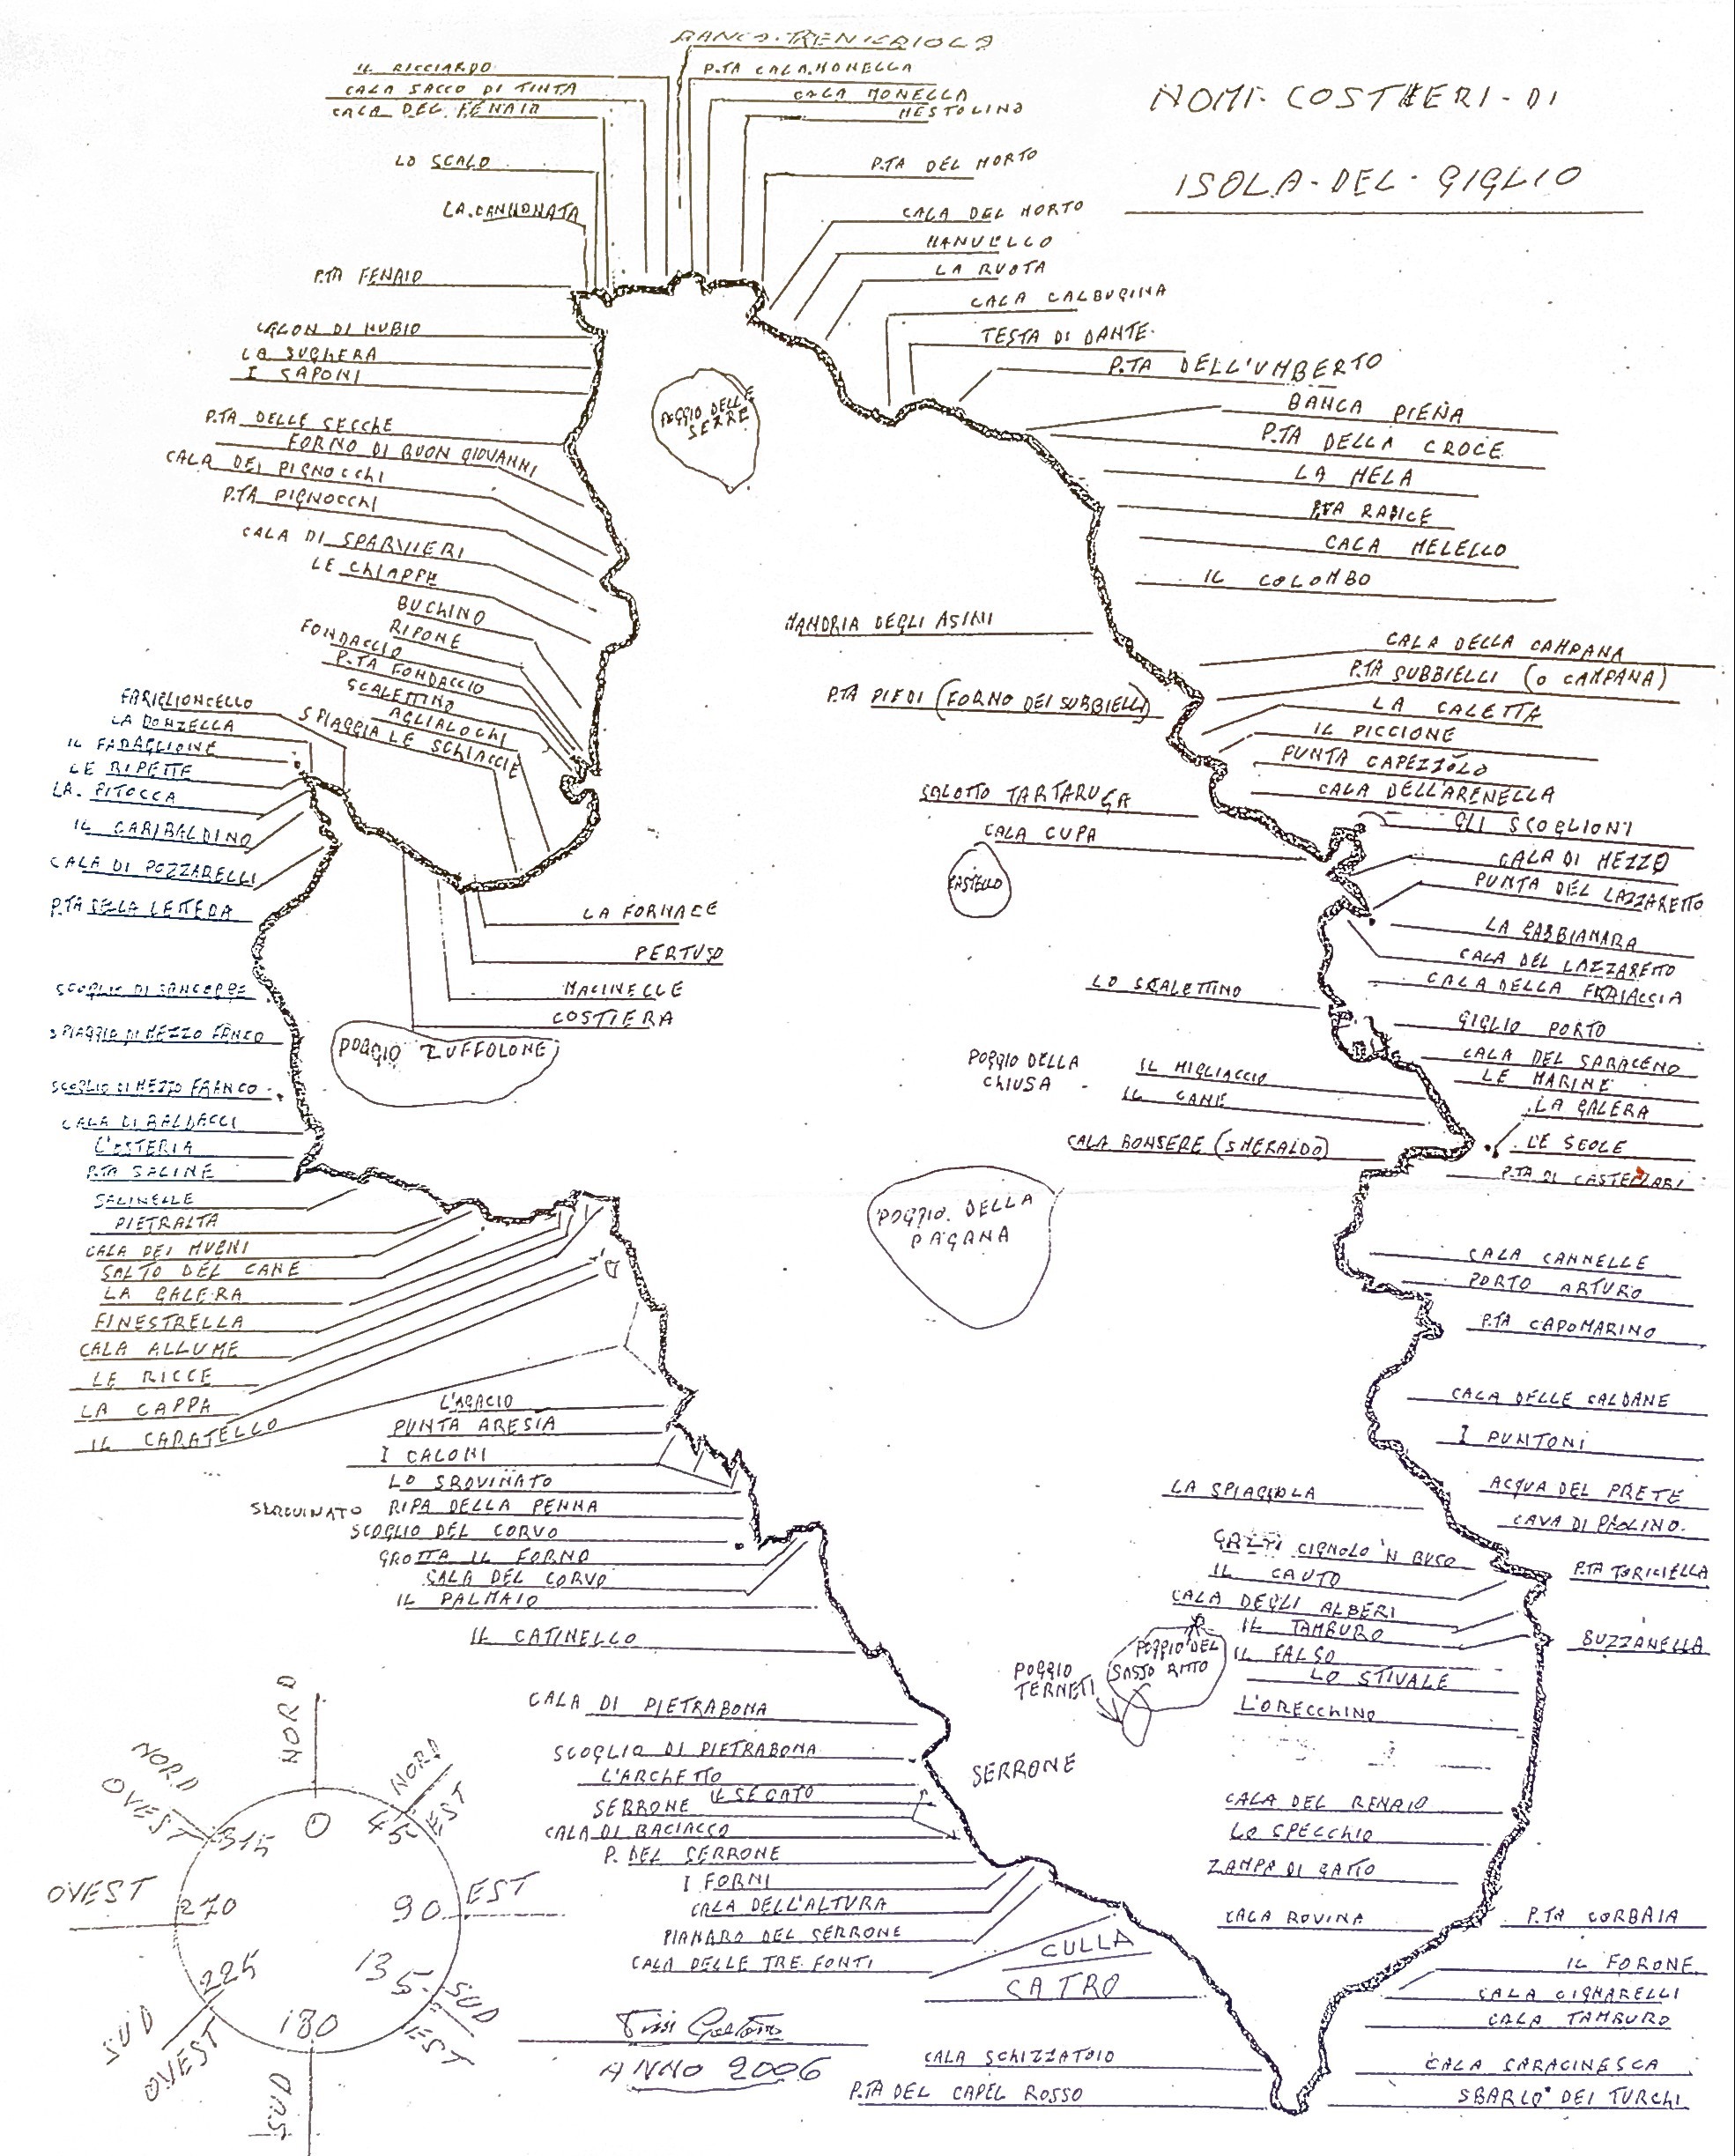 NOMI COSTIERI DI
ISOLA DEL GIGLIO
IL RICCIARDO
CALA SACCO DI TINTA
CALA DEL FENAIO
LO SCALO
LA CANNONATA
P.TA FENAIO
P.TA CALA MONELLA
CALA MONELLA
MESTOLINO
P.TA DEL MORTO
CALA DEL MORTO
MANUELLO
LA RUOTA
CALA CALBUGINA
TESTA DI DANTE
P.TA DELL'UMBERTO
BANCA PIENA
P.TA DELLA CROCE
LA MELA
P.TA RADICE
CALA MELELLO
IL COLOMBO
MANDRIA DEGLI ASINI
CALA DELLA CAMPANA
P.TA SUBBIELLI (O CAMPANA)
P.TA PIEDI (FORNO DEI SUBBIELLI)
LA CALETTA
IL PICCIONE
PUNTA CAPEZZOLO
CALA DELL'ARENELLA
SALOTTO TARTARUGA
CALA CUPA
GLI SCOGLIONI
CALA DI MEZZO
PUNTA DEL LAZZARETTO
LA GABBIANARA
CALA DEL LAZZARETTO
CALA DELLA FRAIACCIA
LO SCALETTINO
GIGLIO PORTO
CALA DEL SARACENO
LE MARINE
LA GALERA
LE SCOLE
P.TA DI CASTELLARI
POGGIO DELLA
CHIUSA
IL MIGLIACCIO
IL CANE
CALA BONSERE (SMERALDO)
CALA CANNELLE
PORTO ARTURO
P.TA CAPOMARINO
CALA DELLE CALDANE
I PUNTONI
ACQUA DEL PRETE
CAVA DI PAOLINO
LA SPIAGGIOLA
CIGNOLO 'N BUCO
IL CAUTO
CALA DEGLI ALBERI
IL TAMBURO
IL FALSO
LO STIVALE
L'ORECCHINO
P.TA TORICIELLA
BUZZANELLA
CALA DEL RENAIO
LO SPECCHIO
ZAMPA DI GATTO
CALA ROVINA
P.TA CORBAIA
IL FORONE
CALA CIGNARELLI
CALA TAMBURO
CALA SARACINESCA
SBARLO' DEI TURCHI
POGGIO DELLE
SERRE
CASTELLO
POGGIO ZUFFOLONE
POGGIO DELLA
PAGANA
POGGIO DEL
SASSO RITTO
POGGIO
TERNETI
SERRONE
CALON DI NUBIO
LA SUGHERA
I SAPONI
P.TA DELLE SECCHE
FORNO DI BUON GIOVANNI
CALA DEI PIGNOCCHI
P.TA PIGNOCCHI
CALA DI SPARVIERI
LE CHIAPPE
BUCHINO
RIPONE
FONDACCIO
P.TA FONDACCIO
SCALETTINO
AGLIALOCHI
SPIAGGIA LE SCHIACCIE
FARIGLIONCELLO
LA DONZELLA
IL FARAGLIONE
LE RIPETTE
LA PITOCCA
IL GARIBALDINO
CALA DI POZZARELLI
LA FORNACE
PERTUSO
MACINELLE
COSTIERA
SPIAGGIO DI MEZZO FRANCO
SCOGLIO DI MEZZO FRANCO
CALA DI BALDACCI
L'OSTERIA
P.TA SALINE
SALINELLE
PIETRALTA
CALA DEI MUGNI
SALTO DEL CANE
LA GALERA
FINESTRELLA
CALA ALLUME
LE RICCE
LA CAPPA
IL CARATELLO
L'AGACIO
PUNTA ARESIA
I CALONI
LO SROVINATO
RIPA DELLA PENNA
SCOGLIO DEL CORVO
GROTTA IL FORNO
CALA DEL CORVO
IL PALMAIO
IL CATINELLO
CALA DI PIETRABONA
SCOGLIO DI PIETRABONA
L'ARCHETTO
IL SEGATO
SERRONE
CALA DI BACIACCO
P. DEL SERRONE
I FORNI
CALA DELL'ALTURA
PIANARO DEL SERRONE
CALA DELLE TRE FONTI
CULLA
CATRO
CALA SCHIZZATOIO
P.TA DEL CAPEL ROSSO
ANNO 2006
NORD
0
NORD EST
45
EST
90
SUD EST
135
SUD
180
SUD OVEST
225
OVEST
270
NORD OVEST
315